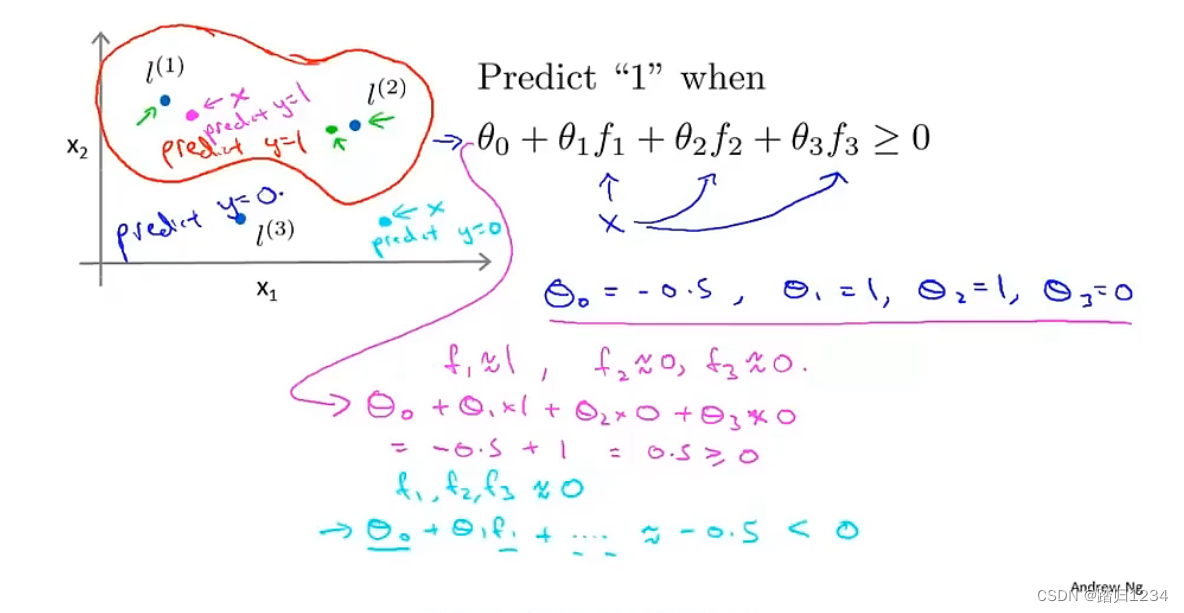 l^{(1)}
← x
predict y=1
l^{(2)}
predict y=1
x₂
predict y=0.
l^{(3)}
← x
predict y=0
x₁
Predict “1” when
→ θ₀ + θ₁f₁ + θ₂f₂ + θ₃f₃ ≥ 0
x
θ₀ = -0.5, θ₁ = 1, θ₂ = 1, θ₃ = 0
f₁ ≈ 1, f₂ ≈ 0, f₃ ≈ 0.
→ θ₀ + θ₁×1 + θ₂×0 + θ₃×0
= -0.5 + 1 = 0.5 ≥ 0
f₁, f₂, f₃ ≈ 0
→ θ₀ + θ₁f₁ + .... ≈ -0.5 < 0
Andrew Ng
CSDN @踏归1234